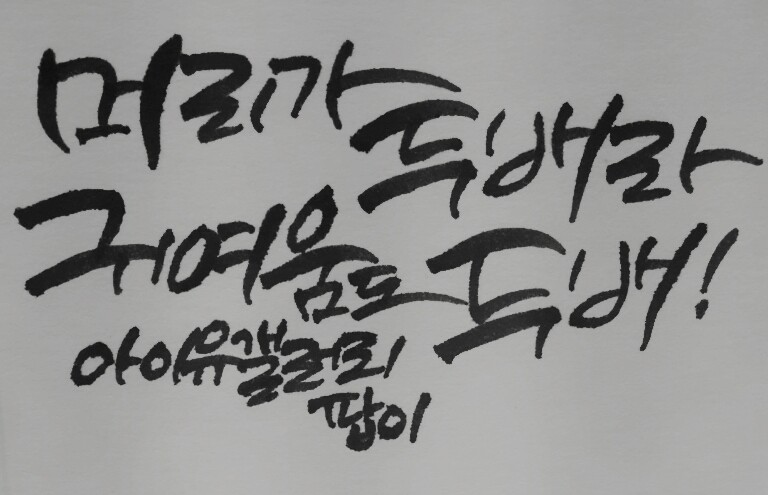 머리가 두배라
귀여움도 두배!
아이유갤러리
팝이